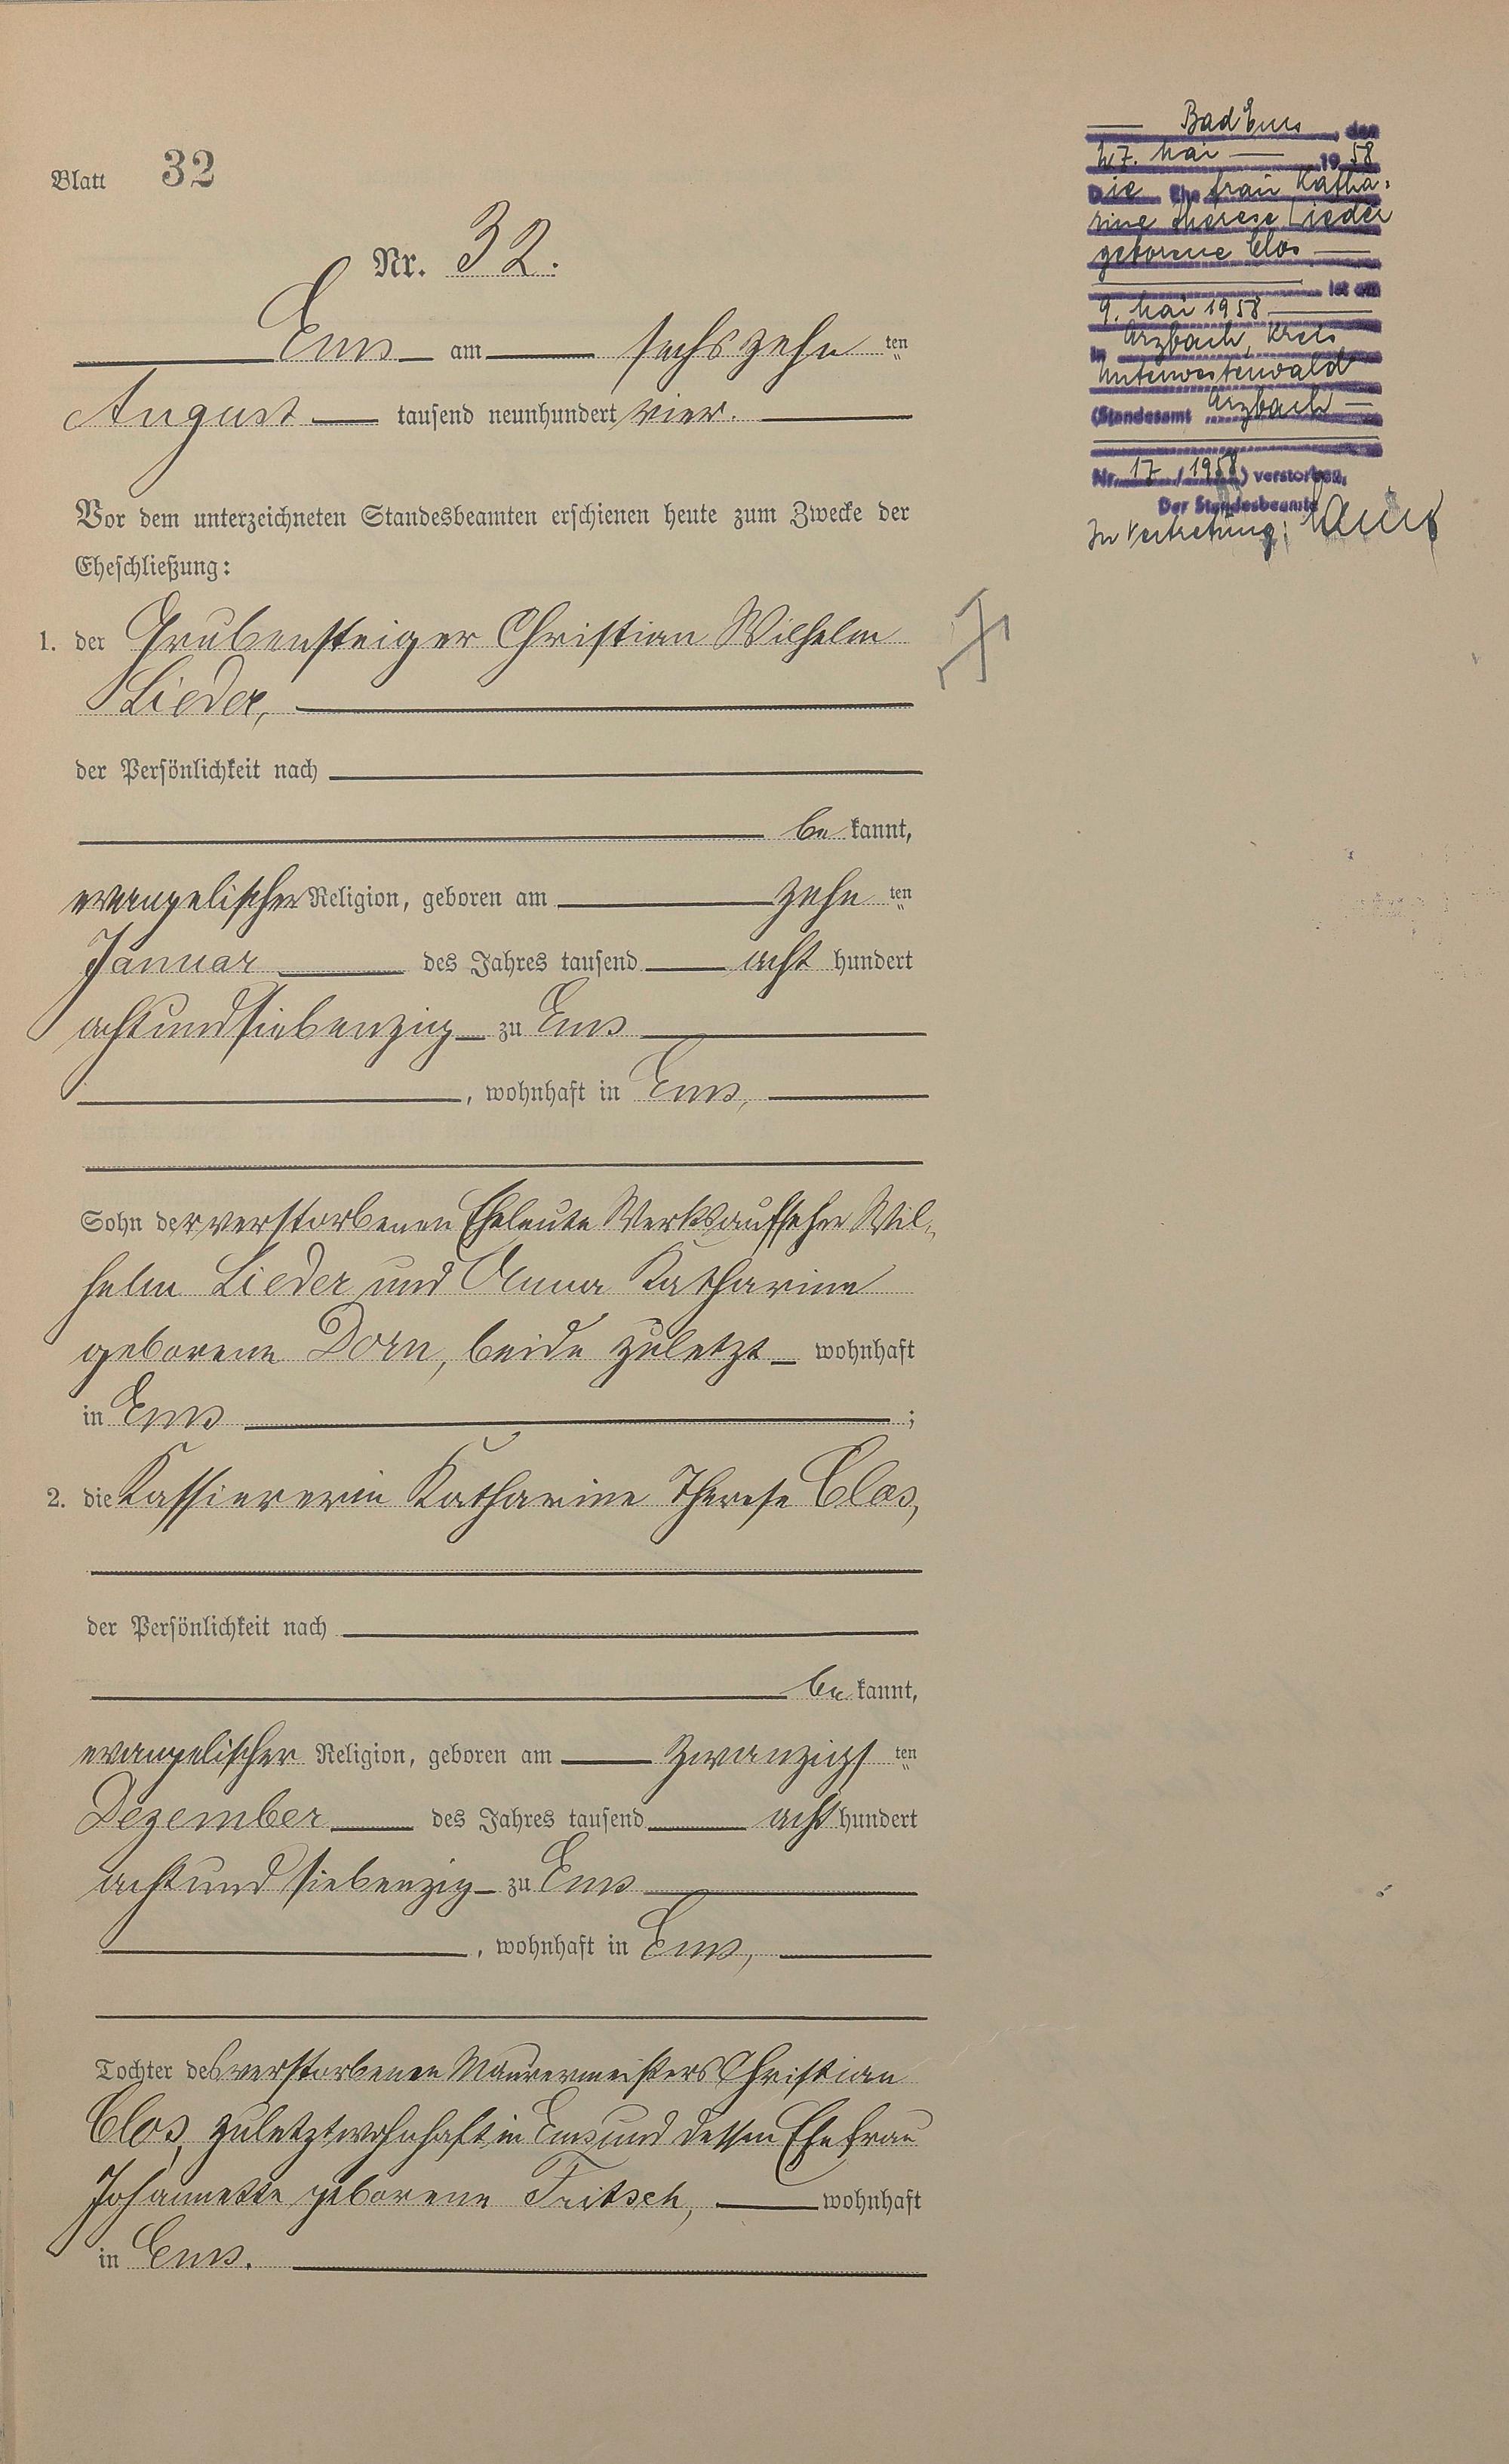 Blatt 32
Nr. 32.
Ems am sechszehn ten
August tausend neunhundert vier.
Vor dem unterzeichneten Standesbeamten erschienen heute zum Zwecke der
Eheschließung:
1. der Grubensteiger Christian Wilhelm
Lieder,
der Persönlichkeit nach
be kannt,
evangelischer Religion, geboren am zehn ten
Januar des Jahres tausend acht hundert
achtundsiebenzig zu Ems
, wohnhaft in Ems,
Sohn der verstorbenen Eheleute Werksaufseher Wil-
helm Lieder und Anna Katharine
geborene Dorn, beide zuletzt wohnhaft
in Ems ;
2. die Kassiererin Katharine Therese Clos,
der Persönlichkeit nach
be kannt,
evangelischer Religion, geboren am zwanzigs ten
Dezember des Jahres tausend acht hundert
achtundsiebenzig zu Ems
, wohnhaft in Ems,
Tochter des verstorbenen Maurermeisters Christian
Clos, zuletzt wohnhaft in Ems und dessen Ehefrau
Johannette geborene Fritsch, wohnhaft
in Ems.
Bad Ems, den
27. Mai 1958
Die Ehefrau Katha-
rine Therese Lieder
geborene Clos
ist am
9. Mai 1958
in Arzbach, Kreis
Unterwesterwald
(Standesamt Arzbach
Nr. 17 / 1958) verstorben.
Der Standesbeamte
In Vertretung: